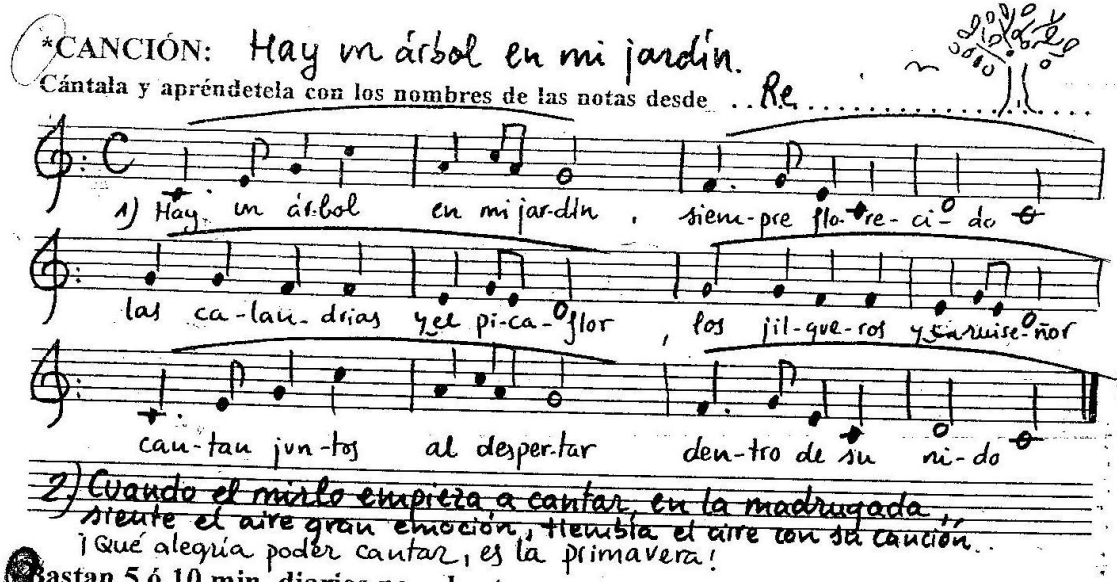 *CANCIÓN: Hay un árbol en mi jardín.
Cántala y apréndetela con los nombres de las notas desde ..Re..............
1) Hay un ár-bol en mi jar-dín , siem-pre flo-re-ci-do
las ca-lan-drias y el pi-ca-flor , los jil-gue-ros y ruise-ñor
can-tan jun-tos al desper-tar den-tro de su ni-do
2) Cuando el mirlo empieza a cantar, en la madrugada,
siente el aire gran emoción, tiembla el aire con su canción..
¡Qué alegría poder cantar, es la primavera!
Bastan 5 ó 10 min. diarios